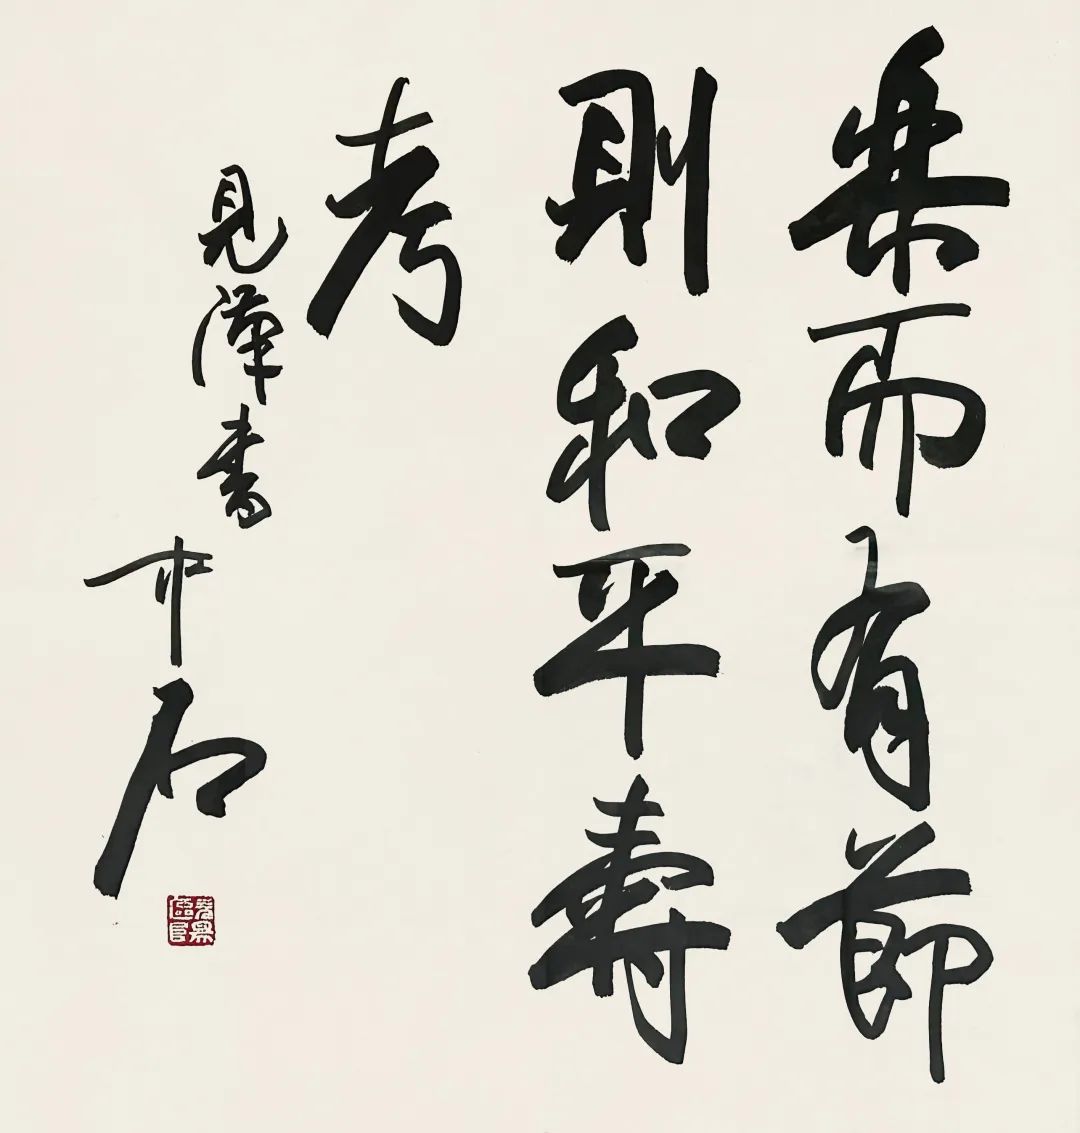 樂而有節
則和平壽
考
見漢書 中石